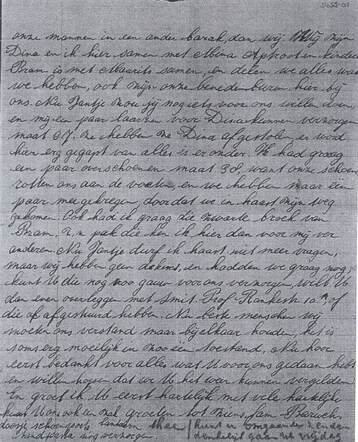 onze mannen in een ander barak, dan wij mijn
Dina en ik hier samen met Mina Aptroot en kinderen
Bram is met Maurits samen, en delen we alles wat
we hebben, ook mijn onze beneden buren hier bij
ons. Nu Jantje zou jij nog iets voor ons willen doen
en mij een paar laarzen voor Dina kunnen verzorgen
maat 37. Ze hebben ze Dina afgestolen, er word
hier erg gegapt van alles is eronder. Ik had graag
een paar overschoenen maat 38, want onze schoenen
rotten ons aan de voeten, en we hebben maar een
paar meegekregen, doordat we in haast zijn weg
gekomen. Ook had ik graag die zwarte broek van
Bram, pak die hen ik hier dan voor mij ver
anderen. Nu Jantje durf ik haast niet meer vragen,
maar wij hebben geen dekens, en hadden we graag nog
kunt U die nog zoo gauw voor ons verzorgen, wilt U
dan even overleggen met Smit, Prof. of
die afgestuurd hebben. Nu beste menschen wij
moeten ons verstand maar bij elkaar houden, het is
soms erg moeilijk in zoo een toestand, nu hoor
eerst bedankt voor alles wat U voor ons gedaan hebt
en willen hopen dat we U het weer kunnen vergelden
En groet ik U eerst hartelijk met vele hartelijke
kunt U van ook en zal groeten tot ziens, fam Beruch
doosje schoensmeer thee kunt U omgaande zenden
handzeepje nog verzorgen